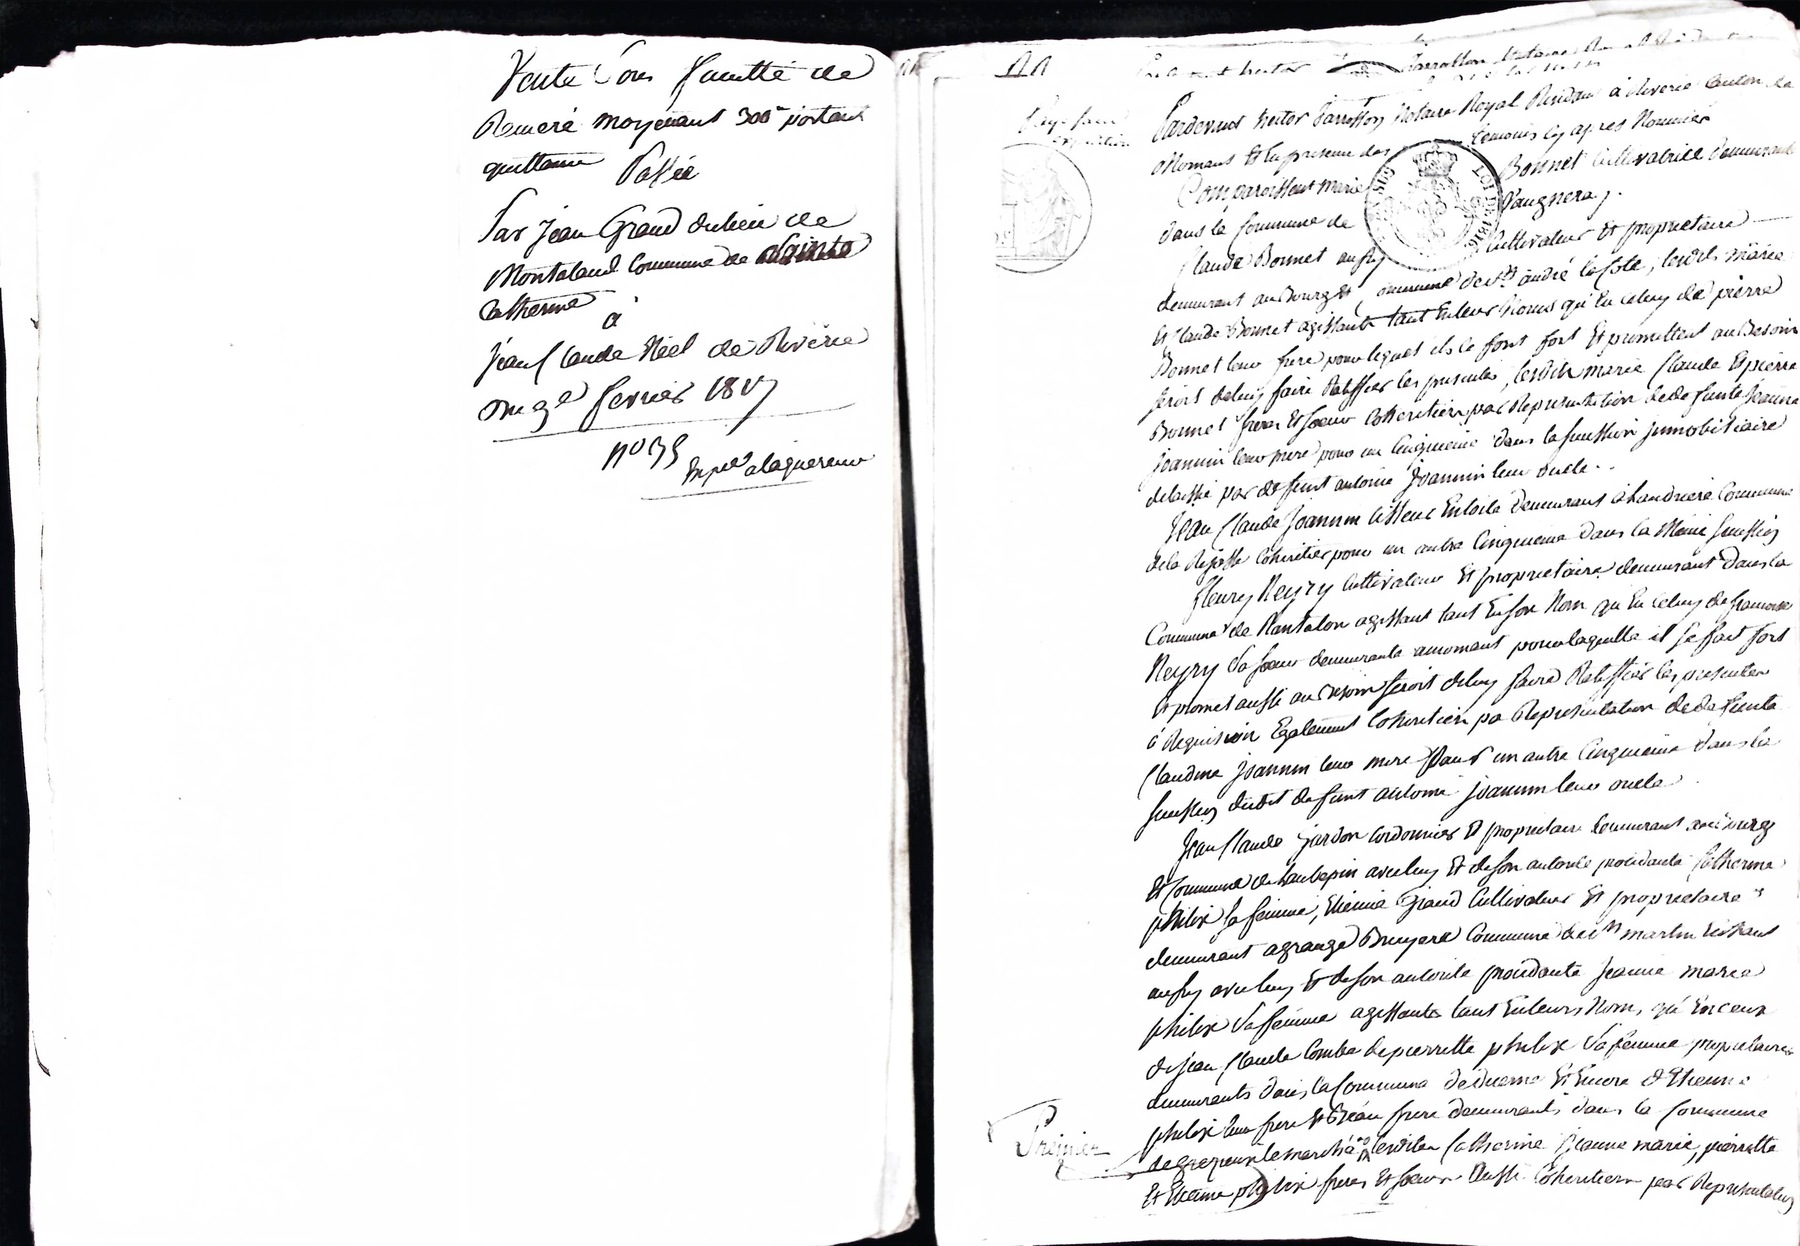 Vente sous faculté de
Remeré moyenant 300 f portant
quittance Passée
Par jean Grand du lieu de
Montaland Commune de Sainte
Catherine
à
jean Claude Néel de Riverie
onze fevrier 1817
N° 35
Pardevant hector notaire Royal Résidant à Riverie Canton de
Mornant Et En presence des temoins cy apres Nommés
Comparoissent marie Bonnet Cultivatrice demeurant
dans la Commune de Vaugneray
Claude Bonnet aussy Cultivateur Et proprietaire
demeurant au Bourg Et Commune de st andré la Cote, lesdits marie
Et Claude Bonnet agissants tant En leurs Noms qu'En celuy de pierre
Bonnet leur frere pour lequel ils se font fort Et promettent au Besoin
seroit de luy faire Ratiffier les presentes, lesdits marie Claude Et pierre
Bonnet freres Et soeur Coheritiers par Representation de defunte Jeanne
Joannin leur mere pour un Cinquieme dans la succession jmmobiliaire
delaissée par defunt antoine Joannin leur oncle
Jean Claude Joannin tisseur En toile demeurant à Commune
de la Rajasse Coheritier pour un autre Cinquieme dans la Même succession
fleury Neyry Cultivateur Et proprietaire demeurant dans la
Commune de Rontalon agissant tant En son Nom qu'En celuy de francoise
Neyry sa soeur demeurante a mornant pour laquelle il se fait fort
Et promet aussi au Besoin seroit de luy faire Ratiffier les presentes
à Requisition Egalement Coheritiers par Representation de defunte
Claudine Joannin leur mere Pour un autre Cinquieme dans la
succession dudit defunt antoine joannin leur oncle
Jean Claude jardon Cordonnier Et proprietaire demeurant au Bourg
Et Commune de Laubepin avec luy Et de son autorité procedante Catherine
philix sa femme, Etienne Grand Cultivateur Et proprietaire
demeurant a grange Bruyere Commune de st martin En haut
aussy avec luy Et de son autorité procedante Jeanne marie
philix sa femme agissants tant En leurs Noms, qu'En ceux
de jean Claude Combe de pierrette philix sa femme proprietaires
demeurants dans la Commune de duerne Et Encore d'Etienne
philix leur frere Et Beau frere demeurant dans la Commune
de grezieux le marché lesdites Catherine, Jeanne marie, pierrette
Et Etienne philix freres Et soeurs aussi Coheritiers par Representation
Premier